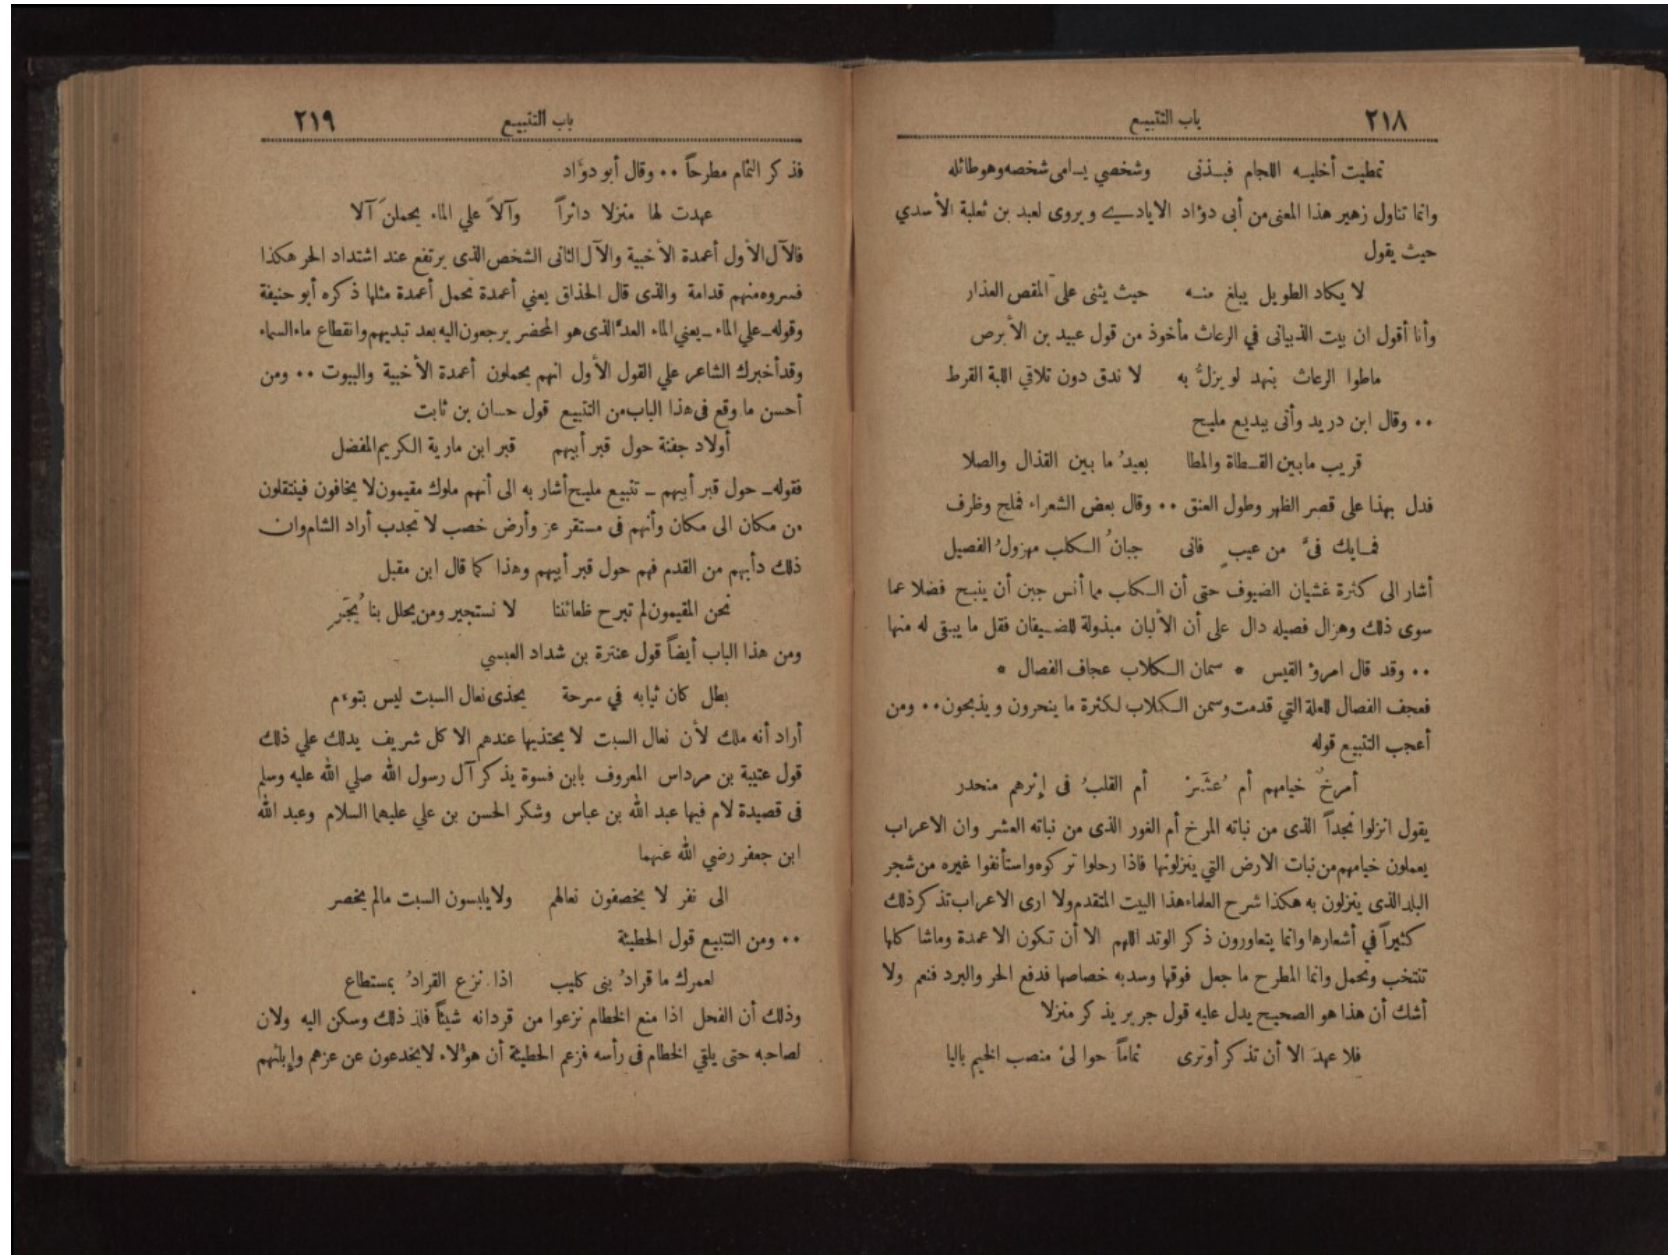 ٢١٨
باب التتبيع
تمطيت أخليه اللجام فبذنى وشخصي يسامى شخصه وهو طائله
وانما تناول زهير هذا المعنى من أبى دؤاد الايادي ويروى لعبد بن ثعلبة الأسدي
حيث يقول
لا يكاد الطويل يبلغ منه حيث يثنى على المقص العذار
وأنا أقول ان بيت الذبيانى في الرعاث مأخوذ من قول عبيد بن الأبرص
ماطوا الرعاث بنهد لو يزلُّ به لا ندق دون تلاقي اللبة القرط
٠٠ وقال ابن دريد وأتى ببديع مليح
قريب ما بين القطاة والمطا بعيدُ ما بين القذال والصلا
فدل بهذا على قصر الظهر وطول العنق ٠٠ وقال بعض الشعراء فملح وظرف
فما يك فىَّ من عيبٍ فانى جبانُ الكلب مهزولُ الفصيل
أشار الى كثرة غشيان الضيوف حتى أن الكلب مما أنس جبن أن ينبح فضلا عما
سوى ذلك وهزال فصيله دال على أن الألبان مبذولة للضيفان فقل ما يبقى له منها
٠٠ وقد قال امرؤ القيس * سمان الكلاب عجاف الفصال *
فعجف الفصال للعلة التي قدمت وسمن الكلاب لكثرة ما ينحرون ويذبحون ٠٠ ومن
أعجب التتبيع قوله
أمرخٌ خيامهم أم عُشَرْ أم القلبُ فى إثرهم منحدر
يقول انزلوا نجداً الذى من نباته المرخ أم الغور الذى من نباته العشر وان الاعراب
يعملون خيامهم من نبات الارض التي ينزلونها فاذا رحلوا تركوه واستأنفوا غيره من شجر
البلد الذى ينزلون به هكذا شرح العلماء هذا البيت المتقدم ولا ارى الاعراب تذكر ذلك
كثيراً في أشعارها وانما يتعاورون ذكر الوتد اللهم الا أن تكون الاعمدة وماشاكلها
تنتخب وتحمل وانما المطرح ما جعل فوقها وسد به خصاصها فدفع الحر والبرد فنعم ولا
أشك أن هذا هو الصحيح يدل عليه قول جرير يذكر منزلا
فلا عهد الا أن تذكر أو ترى ثماماً حوالى منصب الخيم باليا
٢١٩
باب التتبيع
فذكر الثمام مطرحاً ٠٠ وقال أبو دؤاد
عهدت لها منزلا داثراً وآلاً علي الماء يحملنَ آلا
فالآل الأول أعمدة الأخبية والآل الثانى الشخص الذى يرتفع عند اشتداد الحر هكذا
فسروه منهم قدامة والذى قال الحذاق يعني أعمدة تحمل أعمدة مثلها ذكره أبو حنيفة
وقوله ـ علي الماء ـ يعني الماء العدَّ الذى هو المحضر يرجعون اليه بعد تبديهم وانقطاع ماء السماء
وقد أخبرك الشاعر علي القول الأول انهم يحملون أعمدة الأخبية والبيوت ٠٠ ومن
أحسن ما وقع فى هذا الباب من التتبيع قول حسان بن ثابت
أولاد جفنة حول قبر أبيهم قبر ابن مارية الكريم المفضل
فقوله ـ حول قبر أبيهم ـ تتبيع مليح أشار به الى أنهم ملوك مقيمون لا يخافون فينتقلون
من مكان الى مكان وأنهم فى مستقر عز وأرض خصب لا تجدب أراد الشام وان
ذلك دأبهم من القدم فهم حول قبر أبيهم وهذا كما قال ابن مقبل
نحن المقيمون لم تبرح ظعائننا لا نستجير ومن يحلل بنا يُجَرِ
ومن هذا الباب أيضاً قول عنترة بن شداد العبسي
بطل كان ثيابه في سرحة يحذى نعال السبت ليس بتوءم
أراد أنه ملك لأن نعال السبت لا يحتذيها عندهم الا كل شريف يدلك علي ذلك
قول عتيبة بن مرداس المعروف بابن فسوة يذكر آل رسول الله صلي الله عليه وسلم
فى قصيدة لام فيها عبد الله بن عباس وشكر الحسن بن علي عليهما السلام وعبد الله
ابن جعفر رضي الله عنهما
الى نفر لا يخصفون نعالهم ولا يلبسون السبت مالم يخصر
٠٠ ومن التتبيع قول الحطيئة
لعمرك ما قرادُ بنى كليب اذا نزع القرادُ بمستطاع
وذلك أن الفحل اذا منع الخطام نزعوا من قردانه شيئاً فلذ ذلك وسكن اليه ولان
لصاحبه حتى يلقي الخطام فى رأسه فزعم الحطيئة أن هؤلاء لا يخدعون عن عزهم وإبائهم